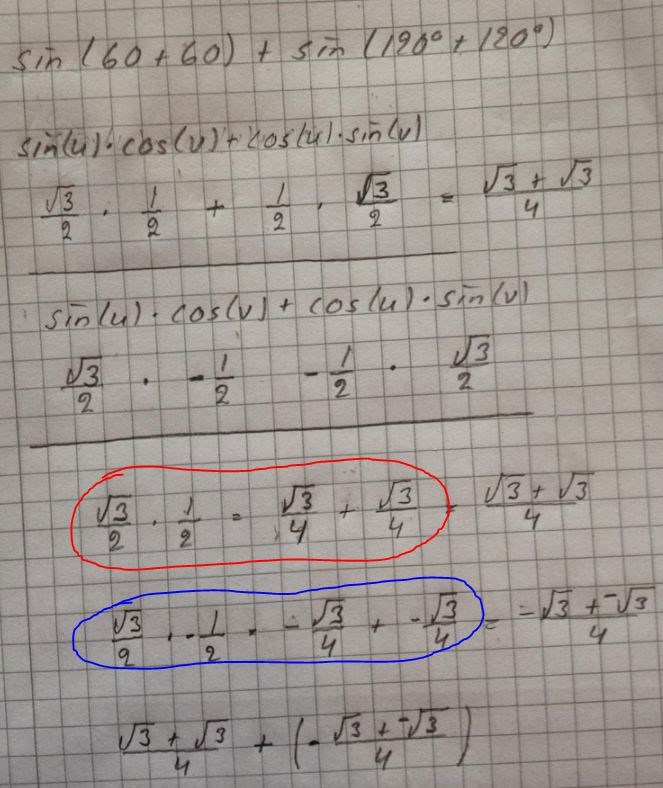 sin(60+60) + sin(120°+120°)
sin(u)·cos(v)+cos(u)·sin(v)
√3/2 · 1/2 + 1/2 · √3/2 = √3+√3/4
sin(u)·cos(v)+cos(u)·sin(v)
√3/2 · -1/2 -1/2 · √3/2
√3/2 · 1/2 = √3/4 + √3/4 = √3+√3/4
√3/2 · -1/2 = -√3/4 + -√3/4 = -√3+-√3/4
√3+√3/4 + (-√3+-√3/4)